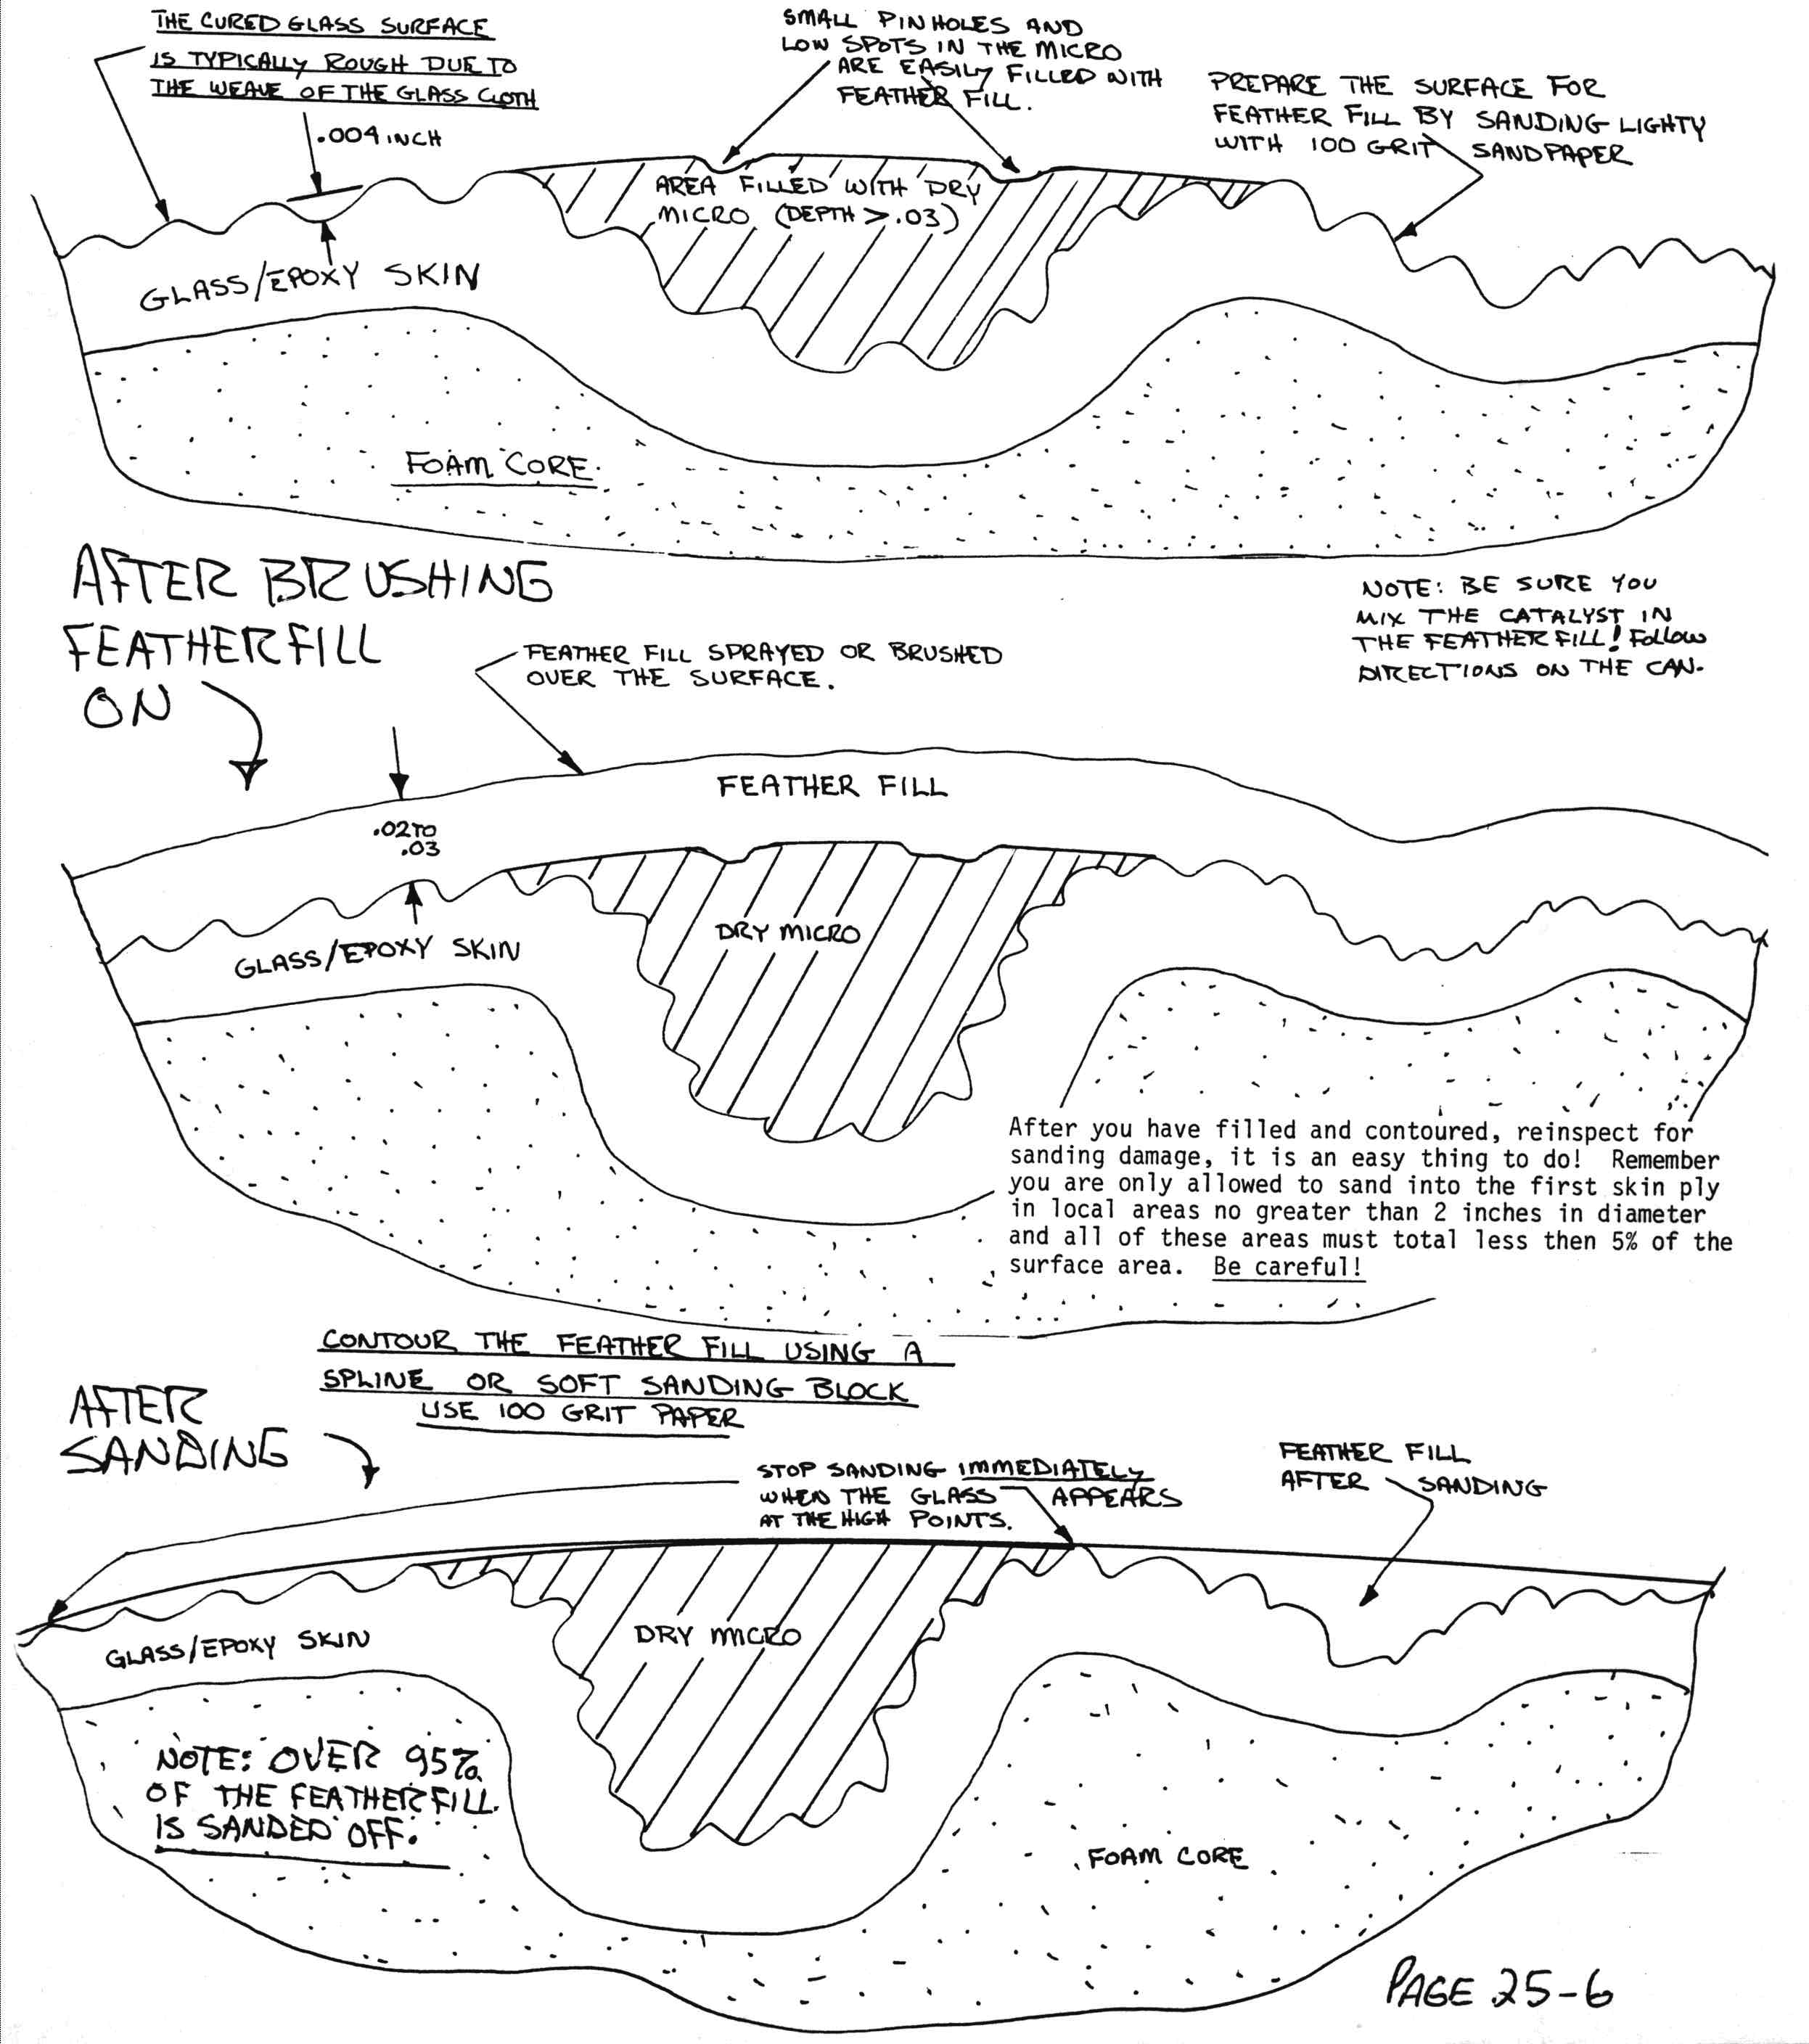 THE CURED GLASS SURFACE
IS TYPICALLY ROUGH DUE TO
THE WEAVE OF THE GLASS CLOTH
.004 INCH
SMALL PINHOLES AND
LOW SPOTS IN THE MICRO
ARE EASILY FILLED WITH
FEATHER FILL.
PREPARE THE SURFACE FOR
FEATHER FILL BY SANDING LIGHTY
WITH 100 GRIT SANDPAPER
AREA FILLED WITH DRY
MICRO (DEPTH > .03)
GLASS/EPOXY SKIN
FOAM CORE
AFTER BRUSHING
FEATHERFILL
ON
NOTE: BE SURE YOU
MIX THE CATALYST IN
THE FEATHER FILL! FOLLOW
DIRECTIONS ON THE CAN.
FEATHER FILL SPRAYED OR BRUSHED
OVER THE SURFACE.
FEATHER FILL
.02 TO
.03
DRY MICRO
GLASS/EPOXY SKIN
After you have filled and contoured, reinspect for
sanding damage, it is an easy thing to do! Remember
you are only allowed to sand into the first skin ply
in local areas no greater than 2 inches in diameter
and all of these areas must total less then 5% of the
surface area. Be careful!
CONTOUR THE FEATHER FILL USING A
SPLINE OR SOFT SANDING BLOCK
USE 100 GRIT PAPER
AFTER
SANDING
STOP SANDING IMMEDIATELY
WHEN THE GLASS APPEARS
AT THE HIGH POINTS.
FEATHER FILL
AFTER SANDING
DRY MICRO
GLASS/EPOXY SKIN
NOTE: OVER 95%
OF THE FEATHERFILL
IS SANDED OFF.
FOAM CORE
PAGE 25-6